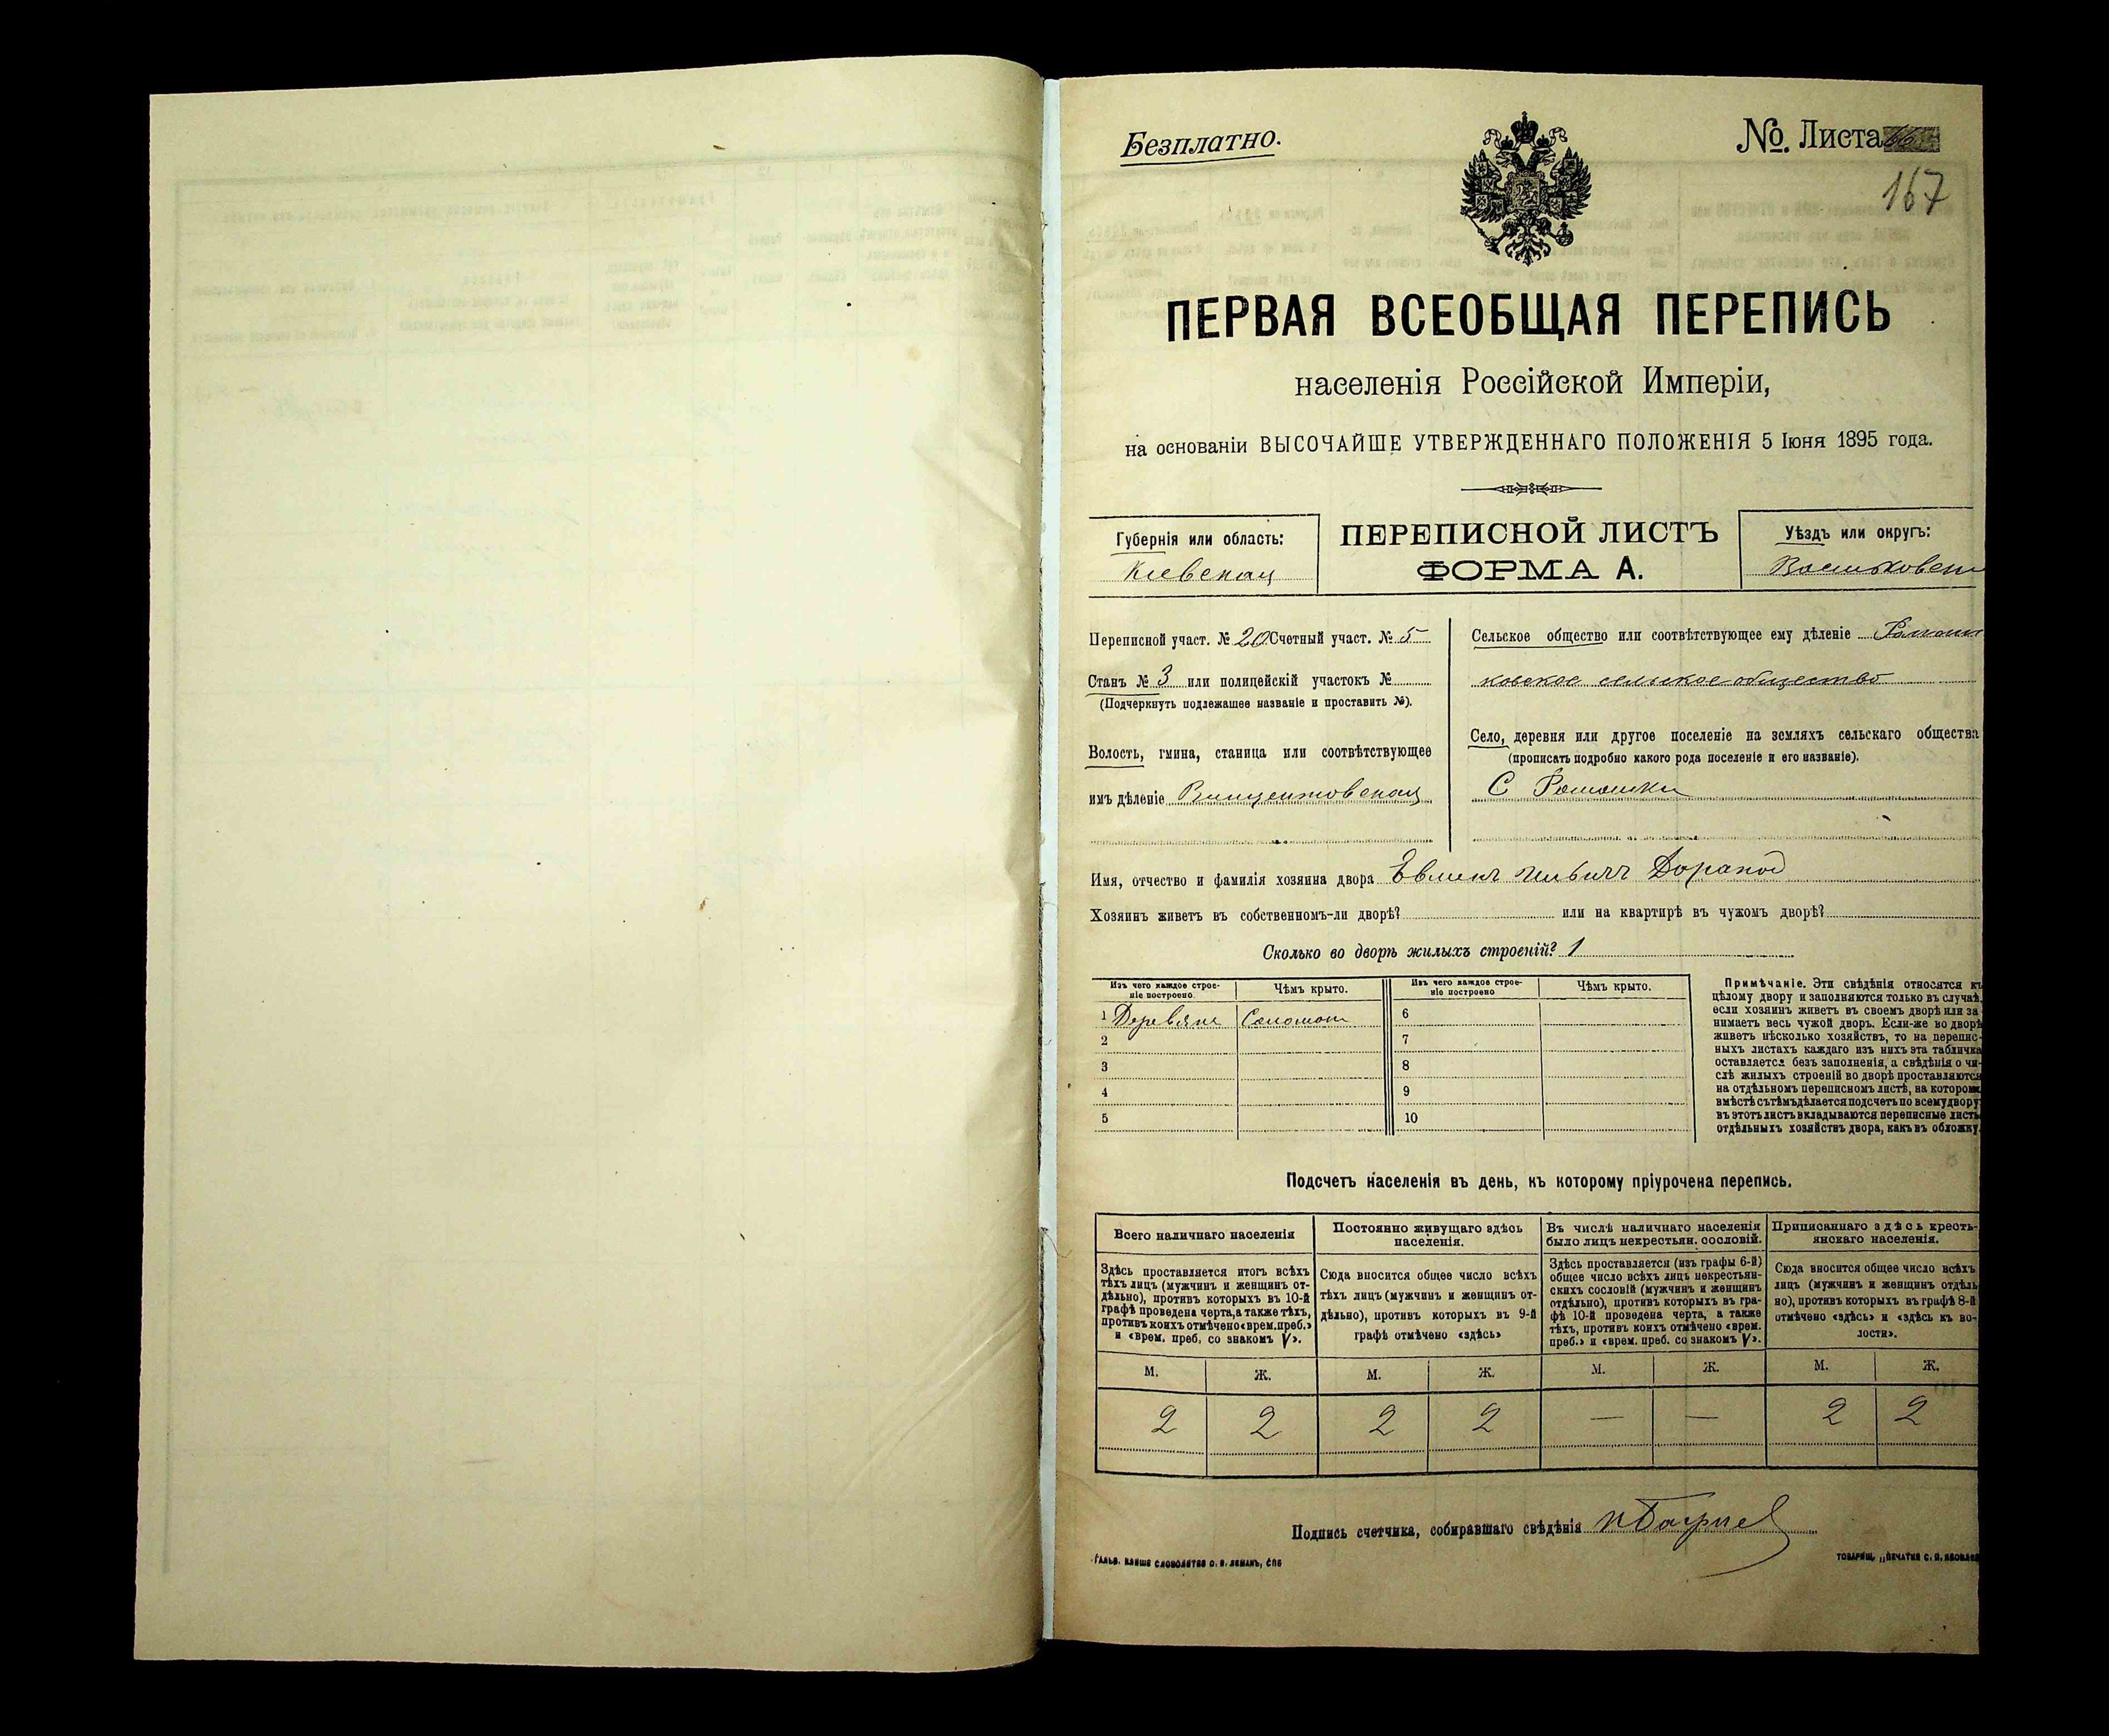 Безплатно.
№ Листа
167
ПЕРВАЯ ВСЕОБЩАЯ ПЕРЕПИСЬ
населенія Россійской Имперіи,
на основаніи ВЫСОЧАЙШЕ УТВЕРЖДЕННАГО ПОЛОЖЕНІЯ 5 Іюня 1895 года.
Губернія или область:
Кіевская
ПЕРЕПИСНОЙ ЛИСТЪ
ФОРМА А.
Уѣздъ или округъ:
Переписной участ. № 20 Счетный участ. № 5
Станъ № 3 или полицейскій участокъ №
(Подчеркнуть подлежащее названіе и проставить №).
Волость, гмина, станица или соотвѣтствующее
имъ дѣленіе Винцентовская
Сельское общество или соотвѣтствующее ему дѣленіе
ковское сельское общество
Село, деревня или другое поселеніе на земляхъ сельскаго общества
(прописать подробно какого рода поселеніе и его названіе).
С Ромашки
Имя, отчество и фамилія хозяина двора
Хозяинъ живетъ въ собственномъ-ли дворѣ? или на квартирѣ въ чужомъ дворѣ?
Сколько во дворѣ жилыхъ строеній? 1
Изъ чего каждое строе-
ніе построено
Чѣмъ крыто.
Изъ чего каждое строе-
ніе построено
Чѣмъ крыто.
1 Деревяне Соломою 6
2 7
3 8
4 9
5 10
Примѣчаніе. Эти свѣдѣнія относятся къ
цѣлому двору и заполняются только въ случаѣ,
если хозяинъ живетъ въ своемъ дворѣ или за-
нимаетъ весь чужой дворъ. Если-же во дворѣ
живетъ нѣсколько хозяйствъ, то на перепис-
ныхъ листахъ каждаго изъ нихъ эта табличка
оставляется безъ заполненія, а свѣдѣнія о чи-
слѣ жилыхъ строеній во дворѣ проставляются
на отдѣльномъ переписномъ листѣ, на которомъ
вмѣстѣ съ тѣмъ дѣлается подсчетъ по всему двору;
въ этотъ листъ вкладываются переписные листы
отдѣльныхъ хозяйствъ двора, какъ въ обложку.
Подсчетъ населенія въ день, къ которому пріурочена перепись.
Всего наличнаго населенія
Здѣсь проставляется итогъ всѣхъ
тѣхъ лицъ (мужчинъ и женщинъ от-
дѣльно), противъ которыхъ въ 10-й
графѣ проведена черта, а также тѣхъ,
противъ коихъ отмѣчено «врем. преб.»
и «врем. преб. со знакомъ V».
Постоянно живущаго здѣсь
населенія.
Сюда вносится общее число всѣхъ
тѣхъ лицъ (мужчинъ и женщинъ от-
дѣльно), противъ которыхъ въ 9-й
графѣ отмѣчено «здѣсь»
Въ числѣ наличнаго населенія
было лицъ некрестьян. сословій.
Здѣсь проставляется (изъ графы 6-й)
общее число всѣхъ лицъ некрестьян-
скихъ сословій (мужчинъ и женщинъ
отдѣльно), противъ которыхъ въ гра-
фѣ 10-й проведена черта, а также
тѣхъ, противъ коихъ отмѣчено «врем.
преб.» и «врем. преб. со знакомъ V».
Приписаннаго здѣсь кресть-
янскаго населенія.
Сюда вносится общее число всѣхъ
лицъ (мужчинъ и женщинъ отдѣль-
но), противъ которыхъ въ графѣ 8-й
отмѣчено «здѣсь» и «здѣсь къ во-
лости».
М. Ж. М. Ж. М. Ж. М. Ж.
2 2 2 2 — — 2 2
Подпись счетчика, собиравшаго свѣдѣнія